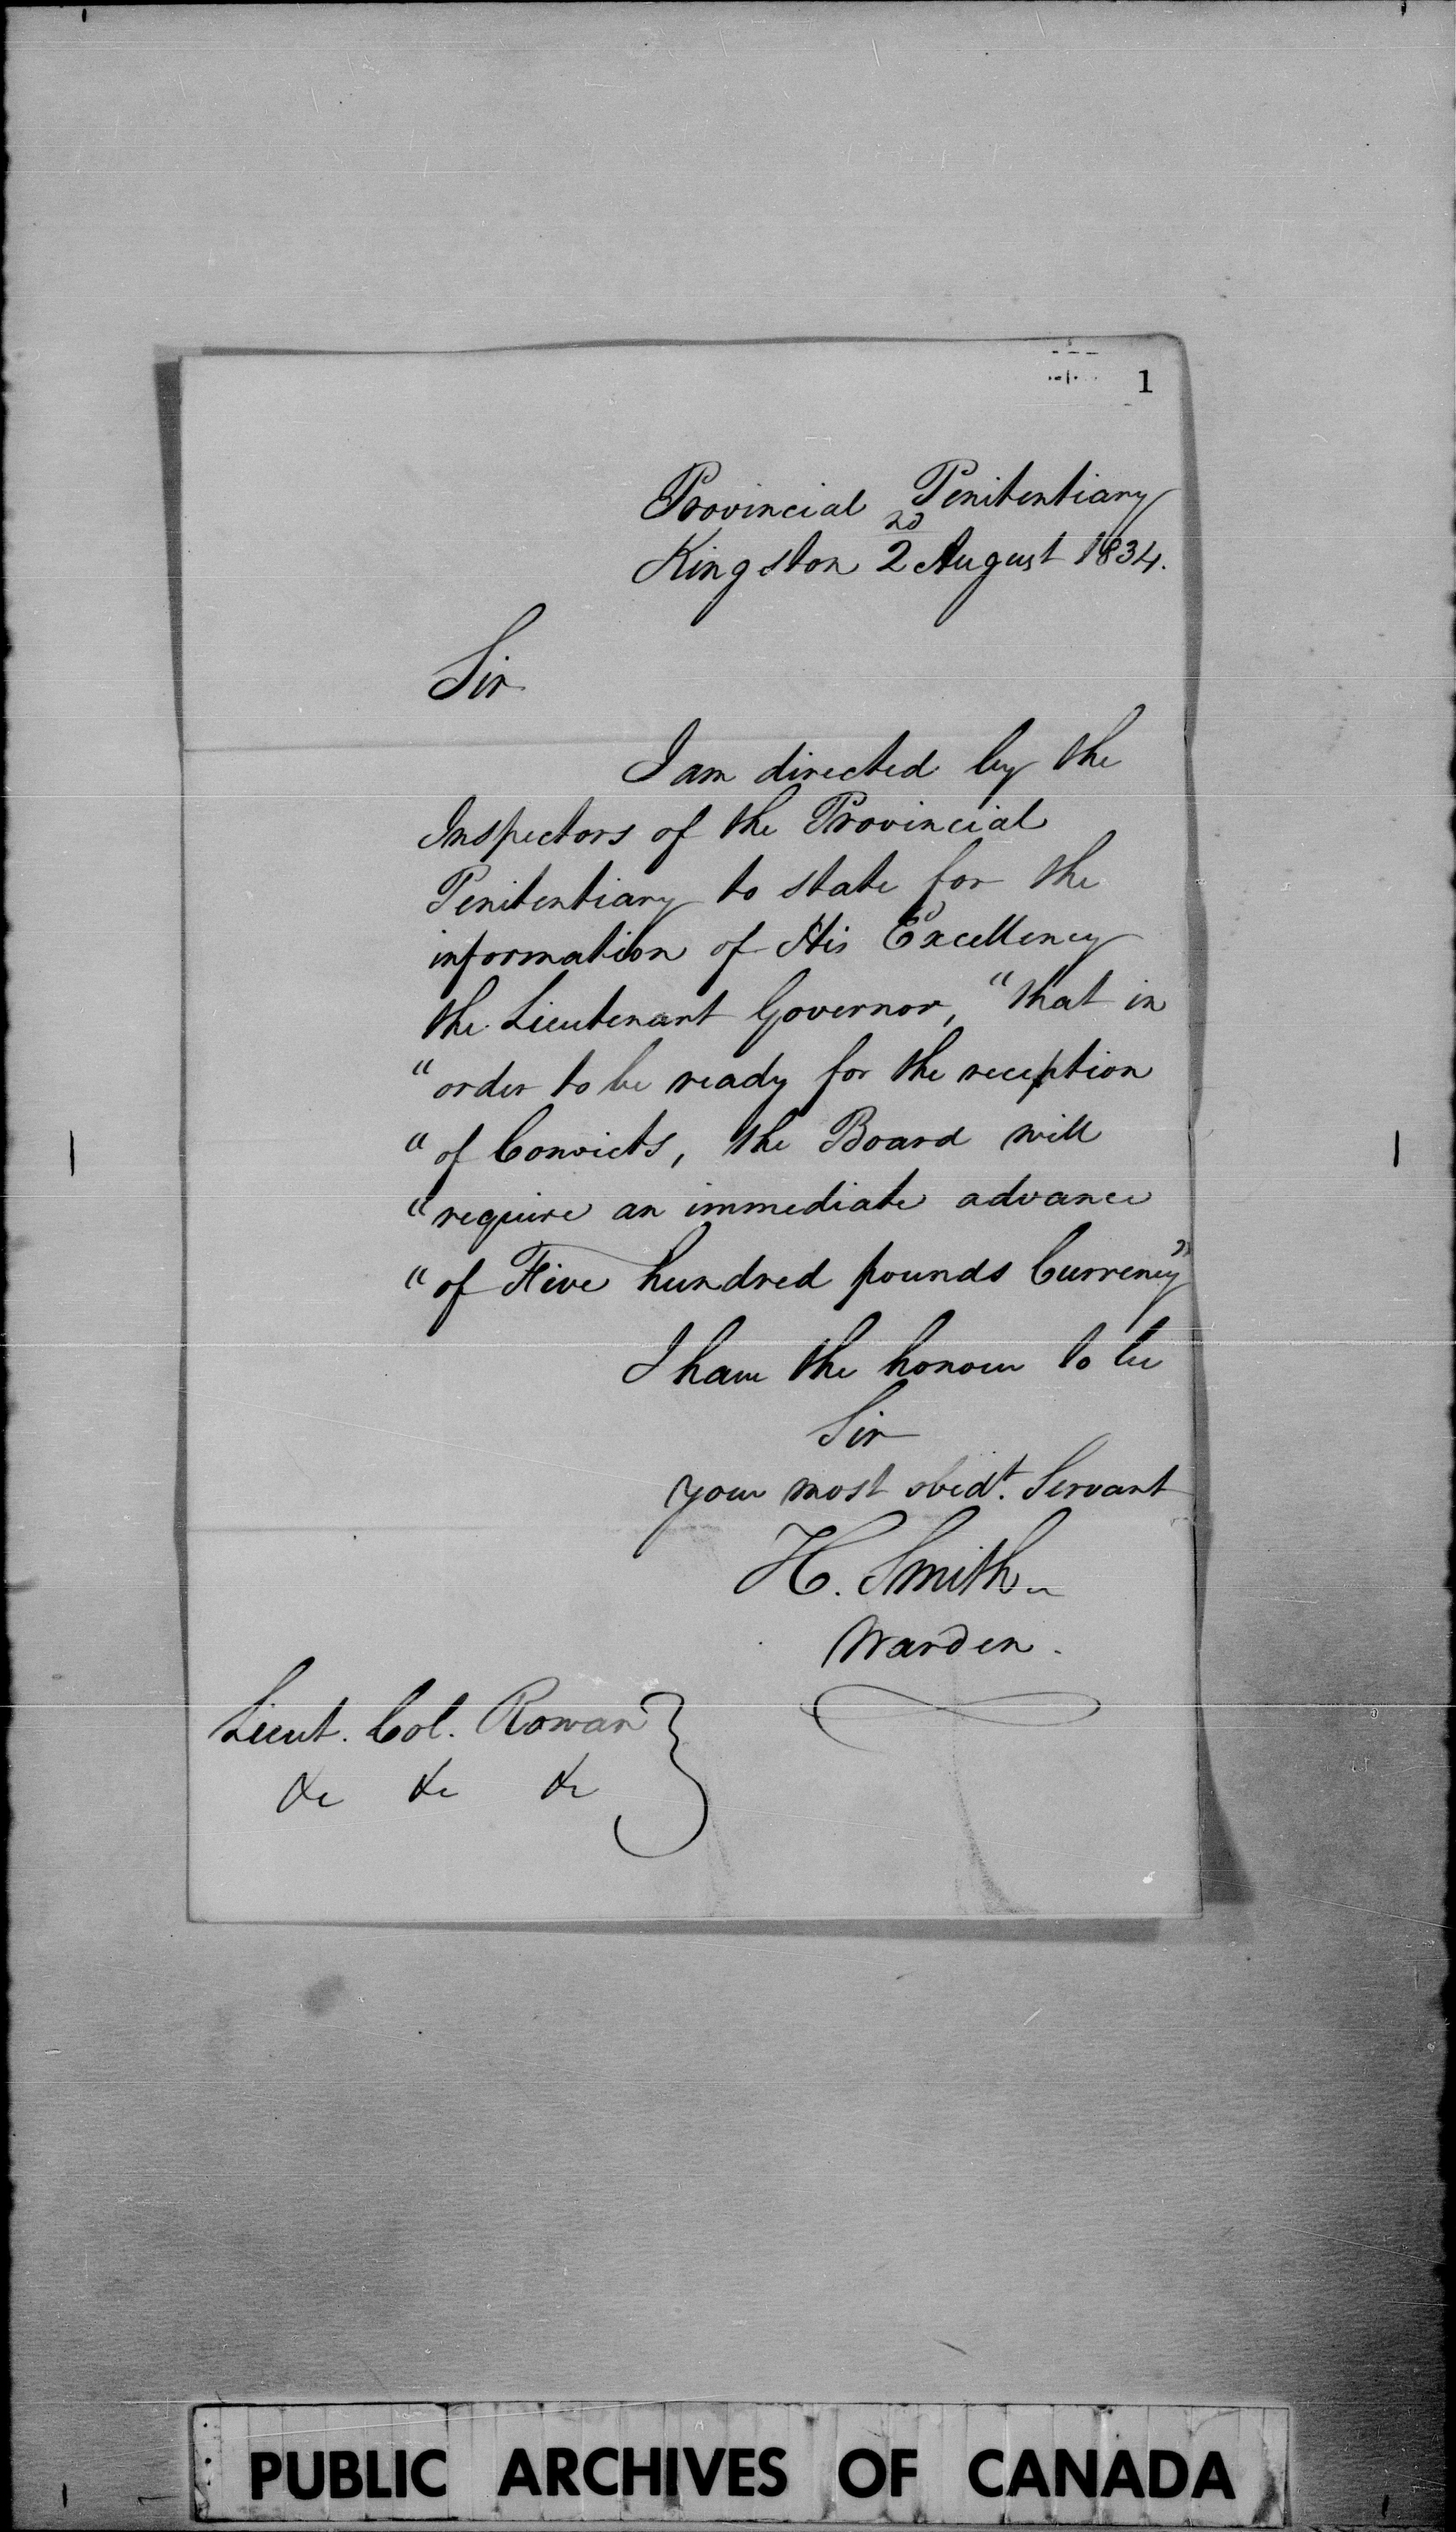 1
Provincial Penitentiary
Kingston 2nd August 1834.
Sir
I am directed by the
Inspectors of the Provincial
Penitentiary to state for the
information of His Excellency
the Lieutenant Governor, "that in
"order to be ready for the reception
"of Convicts, the Board will
"require an immediate advance
"of Five hundred pounds Currency"
I have the honour to be
Sir
your most obedt. Servant
H. Smith
Warden.
Lieut. Col. Rowan
&c &c &c
PUBLIC ARCHIVES OF CANADA